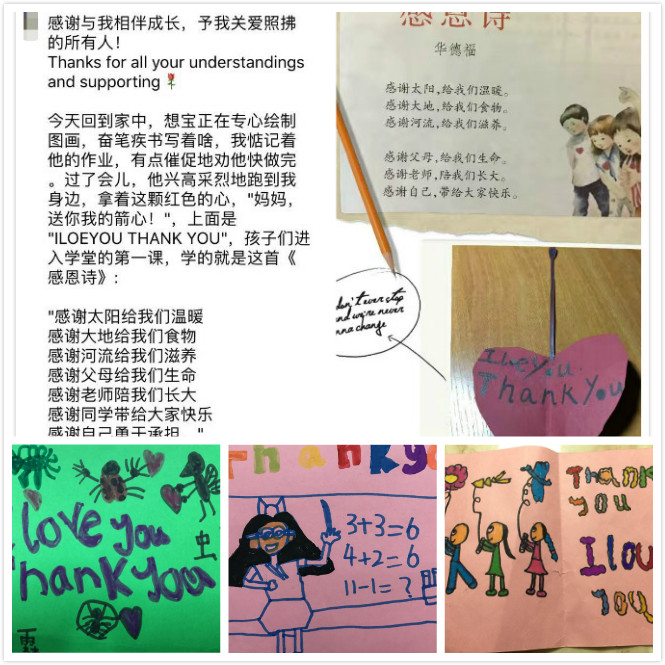 感谢与我相伴成长，予我关爱照拂
的所有人！
Thanks for all your understandings
and supporting
今天回到家中，想宝正在专心绘制
图画，奋笔疾书写着啥，我惦记着
他的作业，有点催促地劝他快做完
。过了会儿，他兴高采烈地跑到我
身边，拿着这颗红色的心，"妈妈，
送你我的箭心！"，上面是
"ILOEYOU THANK YOU"，孩子们进
入学堂的第一课，学的就是这首《
感恩诗》:
"感谢太阳给我们温暖
感谢大地给我们食物
感谢河流给我们滋养
感谢父母给我们生命
感谢老师陪我们长大
感谢同学带给大家快乐
感谢自己勇于承担..."
感恩诗
华德福
感谢太阳,给我们温暖。
感谢大地,给我们食物。
感谢河流,给我们滋养。
感谢父母,给我们生命。
感谢老师,陪我们长大。
感谢自己,带给大家快乐。
don't ever stop
and we're never
nna change
Iloeyou
Thank You
love you
hank you
虫
Thank yo
3+3=6
4+2=6
11-1=?
Thank
you
I lou
you